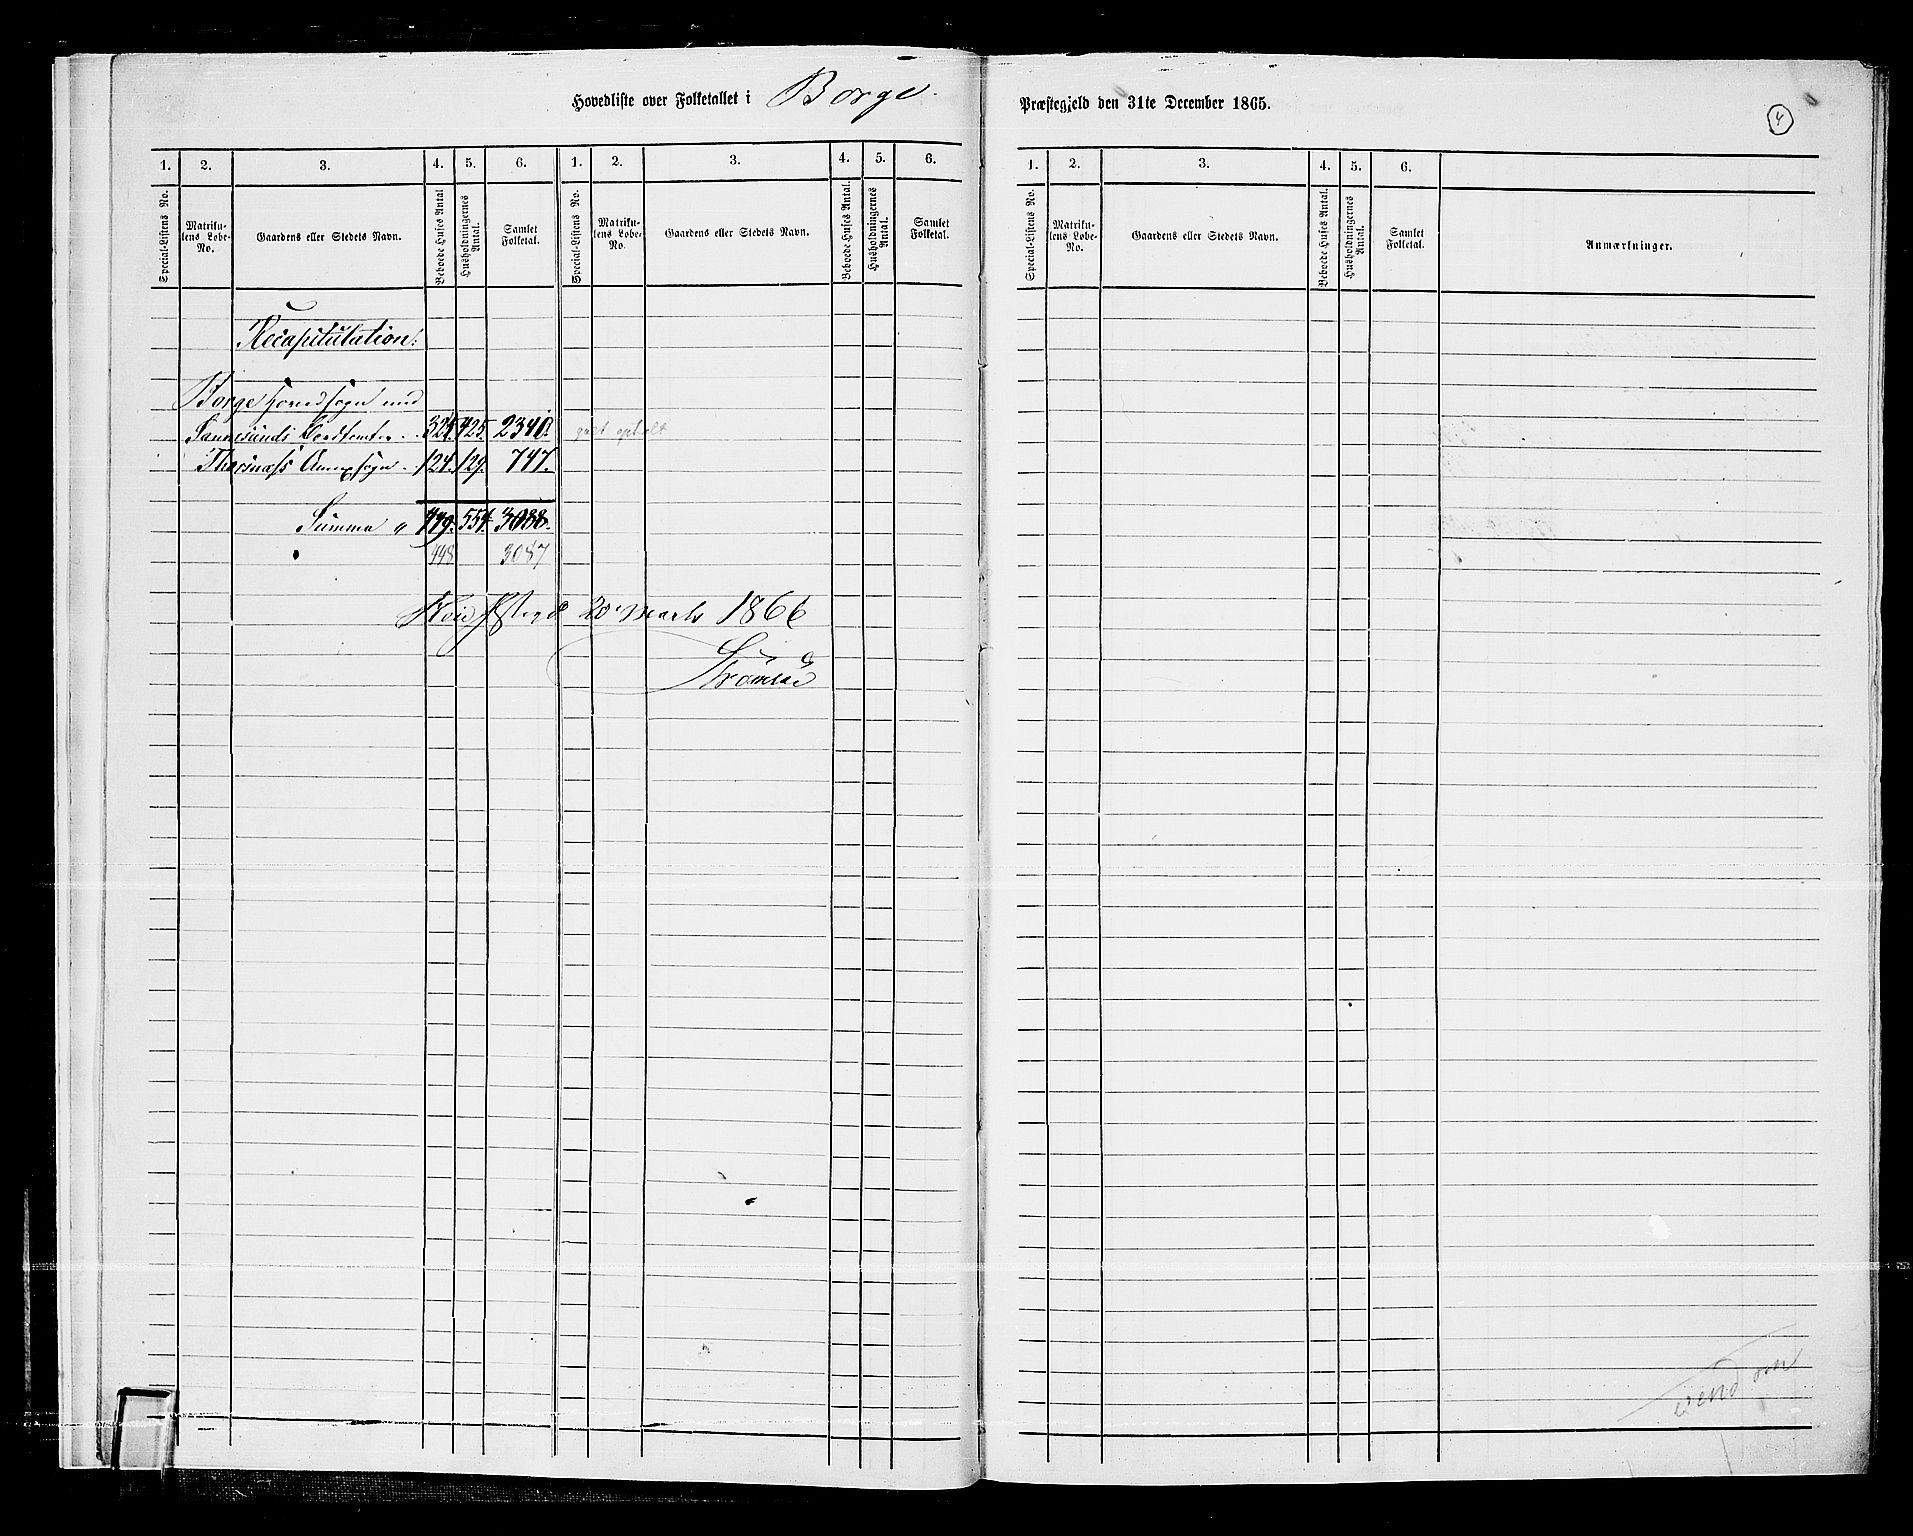 Hovedliste over Folketallet i Borge Præstegjeld den 31te December 1865.
4
1. 2. 3. 4. 5. 6. 1. 2. 3. 4. 5. 6.
1. 2. 3. 4. 5. 6.
Special-Listens No. Matriku-lens Løbe-No. Gaardens eller Stedets Navn. Beboede Huses Antal Husholdningernes Antal. Samlet Folketal. Special-Listens No. Matriku-lens Løbe-No. Gaardens eller Stedets Navn. Beboede Huses Antal. Husholdningernes Antal. Samlet Folketal.
Special-Listens No. Matriku-lens Løbe-No. Gaardens eller Stedets Navn. Beboede Huses Antal. Husholdningernes Antal. Samlet Folketal. Anmærkninger.
Recapitulation:
Borge Hovedsogn med
Sannesunds 324. 425. 2340. galt optalt
Thorsnæss Annexsogn 124. 129. 747.
Summa " 449. 554. 3088.
448 3087
20 Marts 1866
vend om